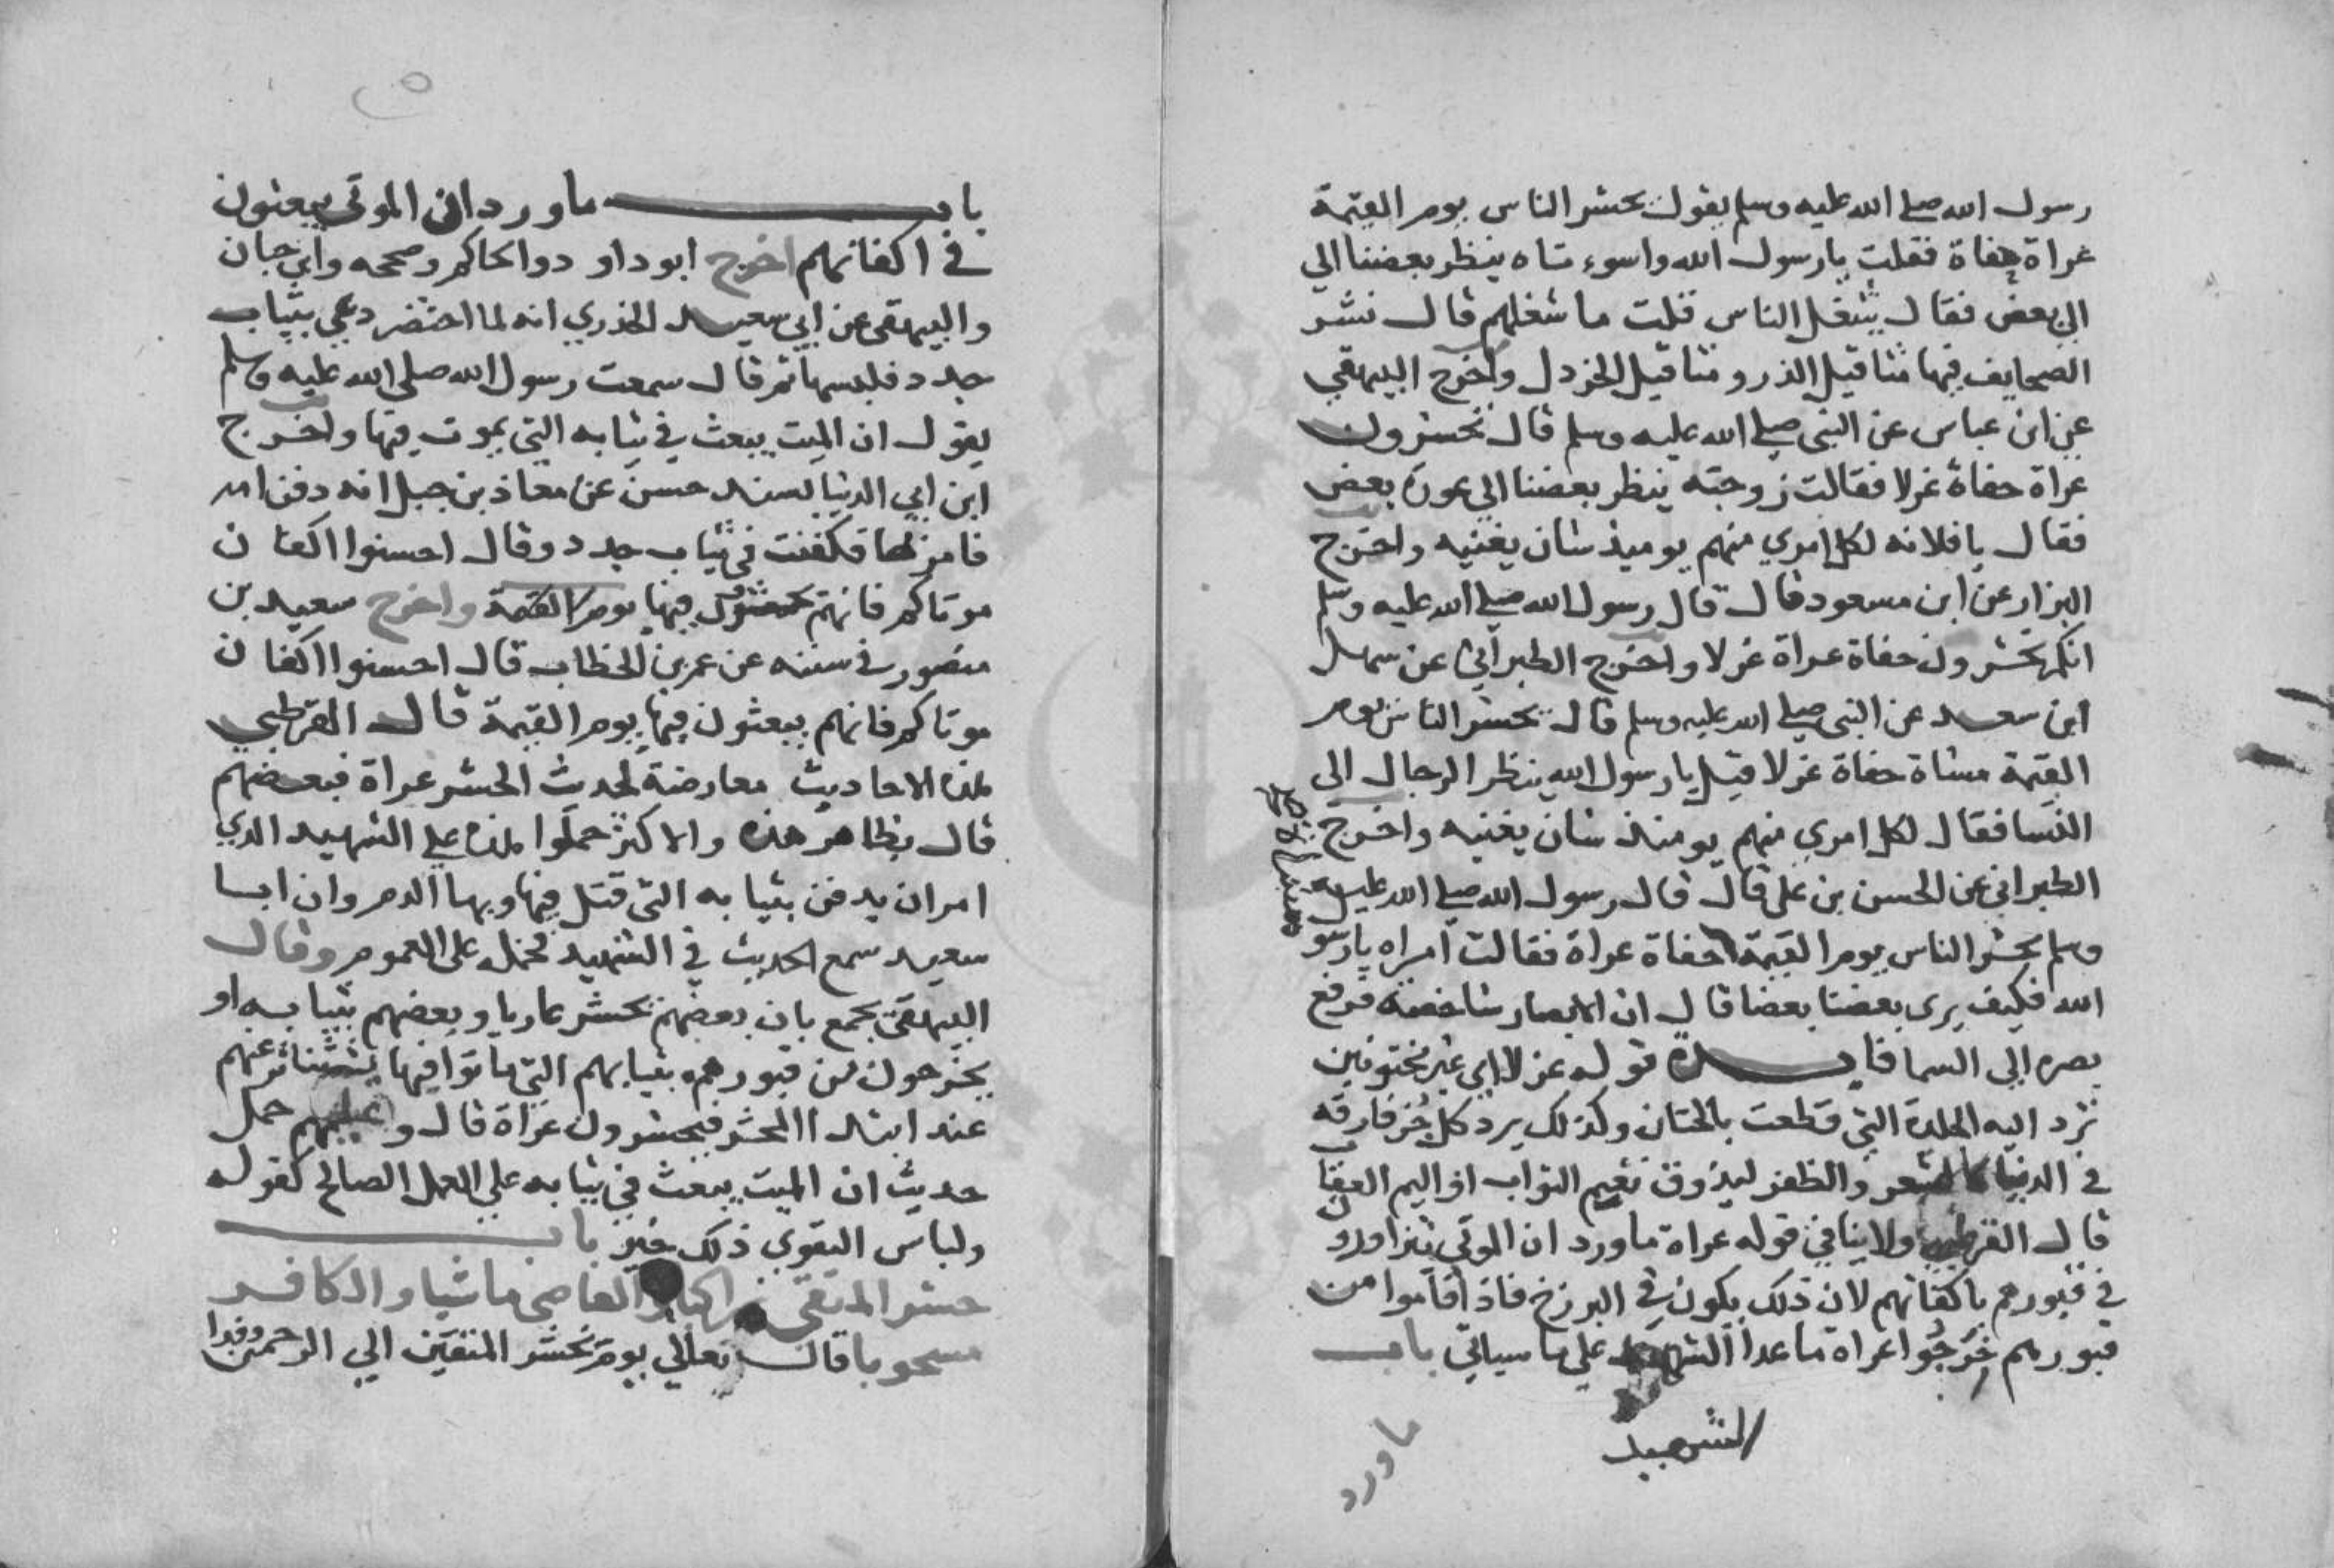 رسول الله صلى الله عليه وسلم يقول يحشر الناس يوم القيمة
عراة حفاة فقلت يا رسول الله واسوءتاه ينظر بعضنا الي
البعض فقال شغل الناس قلت ما شغلهم قال نشر
الصحايف فيها مثاقيل الذر ومثاقيل الخردل واخرج البيهقي
عن ابن عباس عن النبي صلي الله عليه وسلم قال تحشرون
عراة حفاة غرلا فقالت زوجته ينظر بعضنا الي عورة بعض
فقال يا فلانه لكل امري منهم يوميذ شان يغنيه واخرج
البزار عن ابن مسعود قال قال رسول الله صلي الله عليه وسلم
انكم تحشرون حفاة عراة غرلا واخرج الطبراني عن سهل
ابن سعد عن النبي صلي الله عليه وسلم قال يحشر الناس يوم
القيمة مشاة حفاة غرلا قيل يا رسول الله ينظر الرجال الى
النسا فقال لكل امري منهم يومئذ شان يغنيه واخرج
الطبراني عن الحسن بن علي قال قال رسول الله صلي الله عليه
وسلم يحشر الناس يوم القيمة حفاة عراة فقالت امراه يا رسو
الله فكيف يرى بعضنا بعضا قال ان الابصار شاخصة فرفع
بصره الى السما فايدة قوله غرلا اي غير مختونين
ترد اليه الجلدة التي قطعت بالختان وكذلك يرد كل جز فارقه
في الدنيا كالشعر والظفر ليذوق نعيم الثواب او اليم العقاب
قال القرطبي ولا ينافي قوله عراة ما ورد ان الموتي يتزاورو
في قبورهم باكفانهم لان ذلك يكون في البرزخ فاذا قاموا من
قبورهم خرجوا عراه ما عدا الشهيد علي ما سياتي باب
الشهيد
ما ورد
باب ما ورد ان الموتى يبعثون
في اكفانهم اخرج ابو داود والحاكم وصححه وابن حبان
والبيهقي عن ابي سعيد الخدري انه لما احتضر دعي بثياب
جدد فلبسها ثم قال سمعت رسول الله صلى الله عليه وسلم
يقول ان الميت يبعث في ثيابه التي يموت فيها واخرج
ابن ابي الدنيا بسند حسن عن معاذ بن جبل انه دفن امه
فامر لها فكفنت في ثياب جدد وقال احسنوا اكفان
موتاكم فانهم يحشرون فيها يوم القيمة واخرج سعيد بن
منصور في سننه عن عمر بن الخطاب قال احسنوا اكفان
موتاكم فانهم يبعثون فيها يوم القيمة قال القرطبي
هذه الاحاديث معارضة لحديث الحشر عراة فبعضهم
قال بظاهر هذه والاكثر حملوا هذه علي الشهيد الذي
امر ان يدفن بثيابه التي قتل فيها وبها الدم وان ابا
سعيد سمع الحديث في الشهيد فحمله على العموم وقال
البيهقي يجمع بان بعضهم يحشر عاريا وبعضهم بثيابه او
يخرجون من قبورهم بثيابهم التي ماتوا فيها ثم تتناثر عنهم
عند ابتدا المحشر فيحشرون عراة قال وبعضهم حمل
حديث ان الميت يبعث في ثيابه علي العمل الصالح كقوله
ولباس التقوي ذلك خير باب
حشر المتقي راكبا والعاصي ماشيا والكافر
مسحوبا قال تعالي يوم نحشر المتقين الي الرحمن وفدا